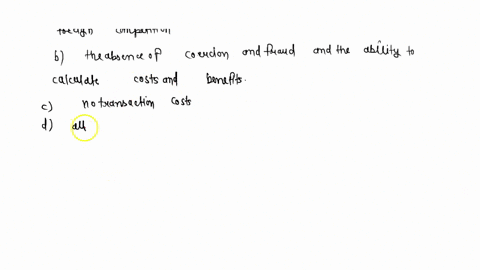 b) the absence of coercion and fraud and the ability to
calculate costs and benefits.
c) no transaction costs
d) all